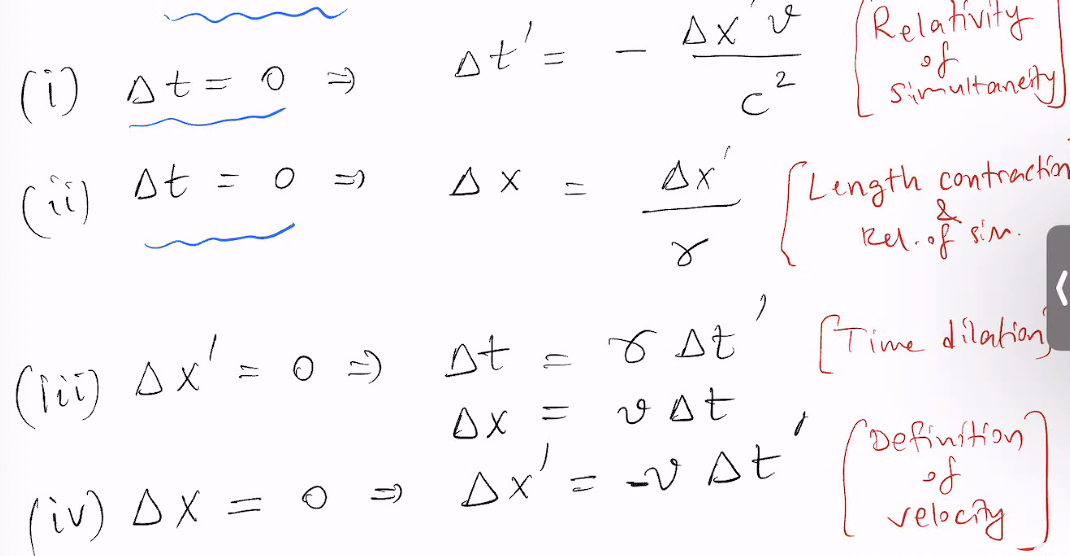 (i) Δt = 0 ⇒ Δt' = − Δx'v / c² [Relativity of simultaneity]
(ii) Δt = 0 ⇒ Δx = Δx' / γ [Length contraction & Rel. of sim.
(iii) Δx' = 0 ⇒ Δt = γ Δt' [Time dilation]
Δx = v Δt
(iv) Δx = 0 ⇒ Δx' = -v Δt' [Definition of velocity]